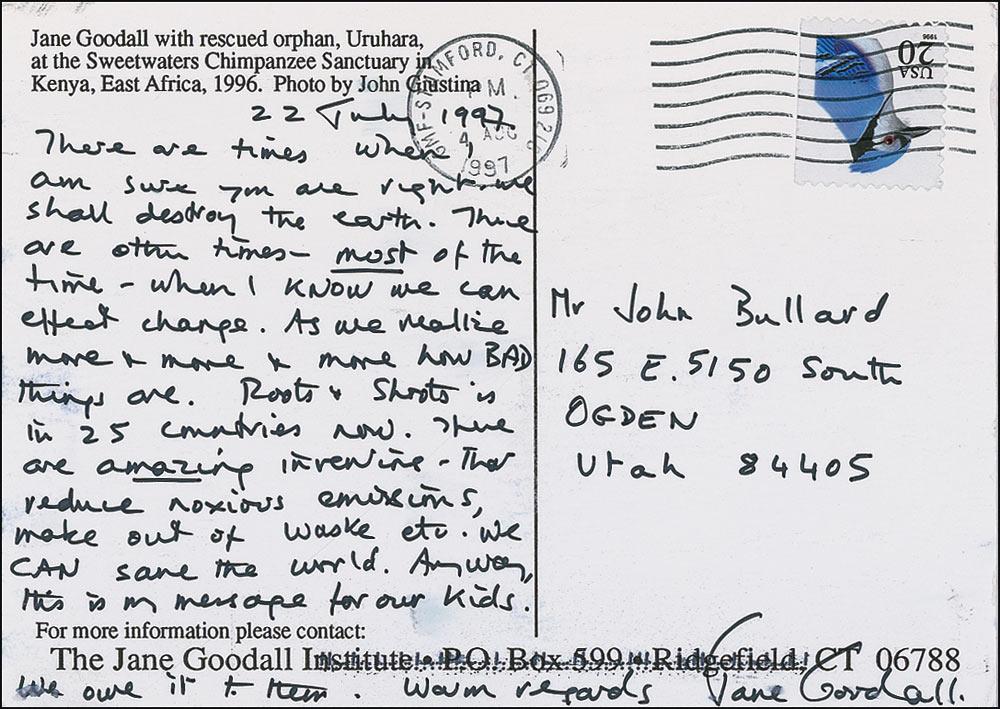 Jane Goodall with rescued orphan, Uruhara,
at the Sweetwaters Chimpanzee Sanctuary in
Kenya, East Africa, 1996. Photo by John Giustina
22 July 1997
There are times when I
am sure you are right. we
shall destroy the earth. There
are other times – most of the
time – when I KNOW we can
effect change. As we realize
more & more & more how BAD
things are. Roots & Shoots is
in 25 countries now. There
are amazing inventions – that
reduce noxious emissions,
make out of waste etc. We
CAN save the world. Anyway,
this is my message for our kids.
For more information please contact:
The Jane Goodall Institute • P.O. Box 599 • Ridgefield, CT 06788
We owe it to them. Warm regards Jane Goodall.
STAMFORD, CT 069
PM.
4 AUG
1997
USA
20
1996
Mr John Bullard
165 E. 5150 South
OGDEN
Utah 84405